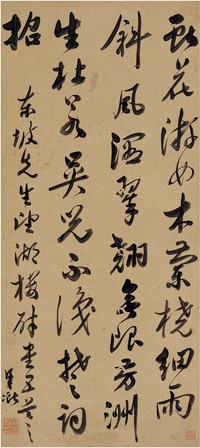 献花游女木蘭橈細雨
斜風濕翠翹無限芳洲
生杜若吳兒不識楚詞
招
東坡先生望湖樓醉書五首之